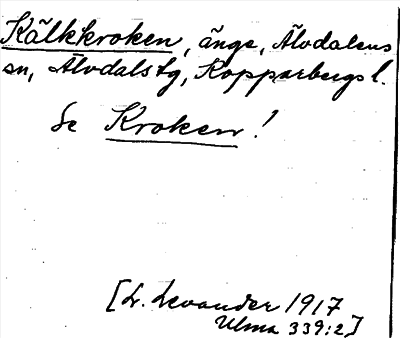 Kälkkroken, änge, Älvdalens
sn, Älvdals tg, Kopparbergs l.
Se Kroken!
[L. Levander 1917
Ulma 339:2]